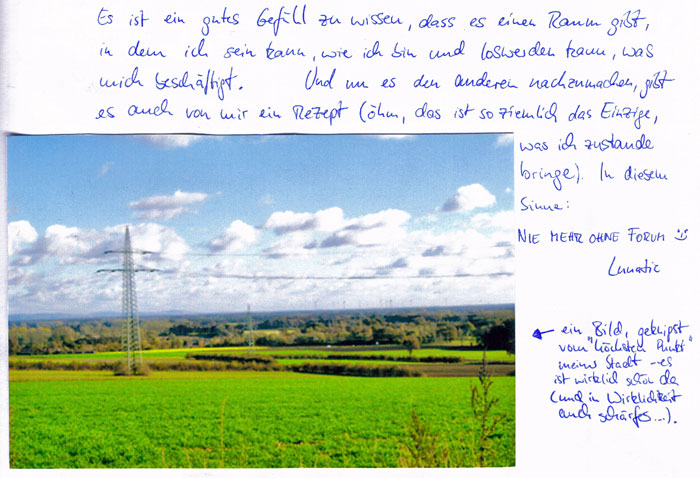 Es ist ein gutes Gefühl zu wissen, dass es einen Raum gibt,
in dem ich sein kann, wie ich bin und loswerden kann, was
mich beschäftigt. Und um es den anderen nachzumachen, gibt
es auch von mir ein Rezept (öhm, das ist so ziemlich das Einzige,
was ich zustande
bringe). In diesem
Sinne:
NIE MEHR OHNE FORUM :)
Lunatic
← ein Bild, geknipst
vom "höchsten Punkt"
meiner Stadt - es
ist wirklich schön da
(und in Wirklichkeit
auch schärfer...).